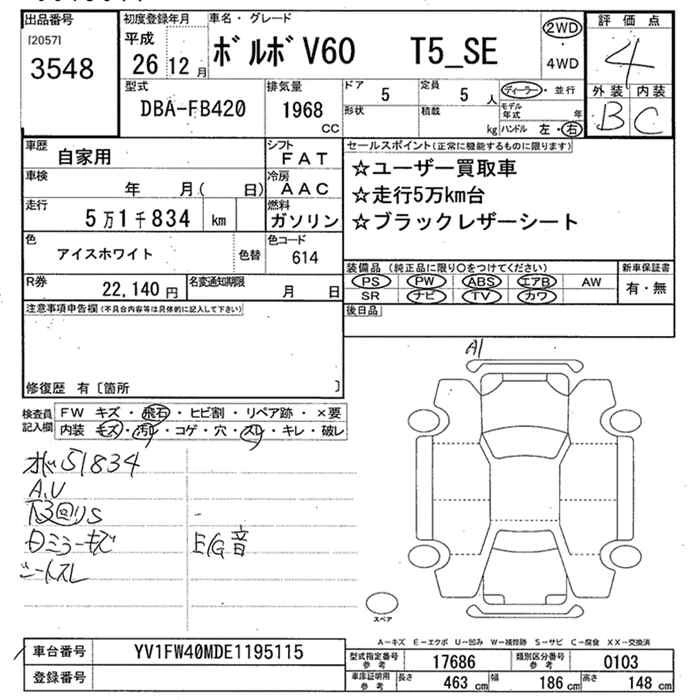 出品番号
[2057]
3548
初度登録年月
平成
26 12 月
車名・グレード
ボルボ V60 T5_SE
2WD
・
4WD
評価点
4
外装 内装
B C
型式
DBA-FB420
排気量
1968
CC
ドア
5
形状
定員
5 人
積載
kg
ディーラー・並行
モデル年式 年
ハンドル 左・右
車歴
自家用
シフト
FAT
車検
年 月( 日)
冷房
AAC
走行
5万1千834 km
燃料
ガソリン
色
アイスホワイト
色替
色コード
614
R券
22,140 円
名変通知期限
月 日
セールスポイント(正常に機能するものに限ります)
☆ユーザー買取車
☆走行5万km台
☆ブラックレザーシート
装備品 (純正品に限り○をつけてください)
PS PW ABS エアB AW
SR ナビ TV カワ
新車保証書
有・無
注意事項申告欄(不具合内容等は具体的に記入して下さい)
後日品
修復歴 有〔箇所 〕
検査員記入欄
FW キズ・飛石・ヒビ割・リペア跡・×要
内装 キズ・汚レ・コゲ・穴・スレ・キレ・破レ
A1
51834
A,U
下回りS
ミラーキズ
E/G音
シートスレ
スペア
A-キズ E-エクボ U-凹み W-補修跡 S-サビ C-腐食 XX-交換済
車台番号
YV1FW40MDE1195115
登録番号
型式指定番号
参考
17686
類別区分番号
参考
0103
車庫証明用
参考
長さ
463 cm
幅
186 cm
高さ
148 cm